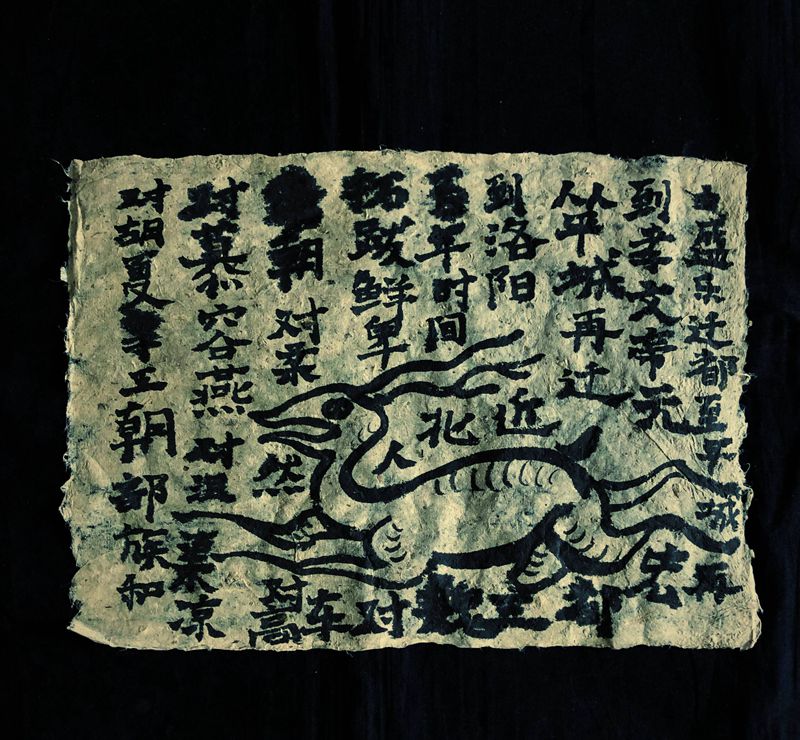 盛乐迁都至平城再
到孝文帝元宏
从平城再迁都
到洛阳近
年时间北魏
拓跋鲜卑人对
朝对柔然对高车
对慕容燕对凉
对胡夏等王朝部族和